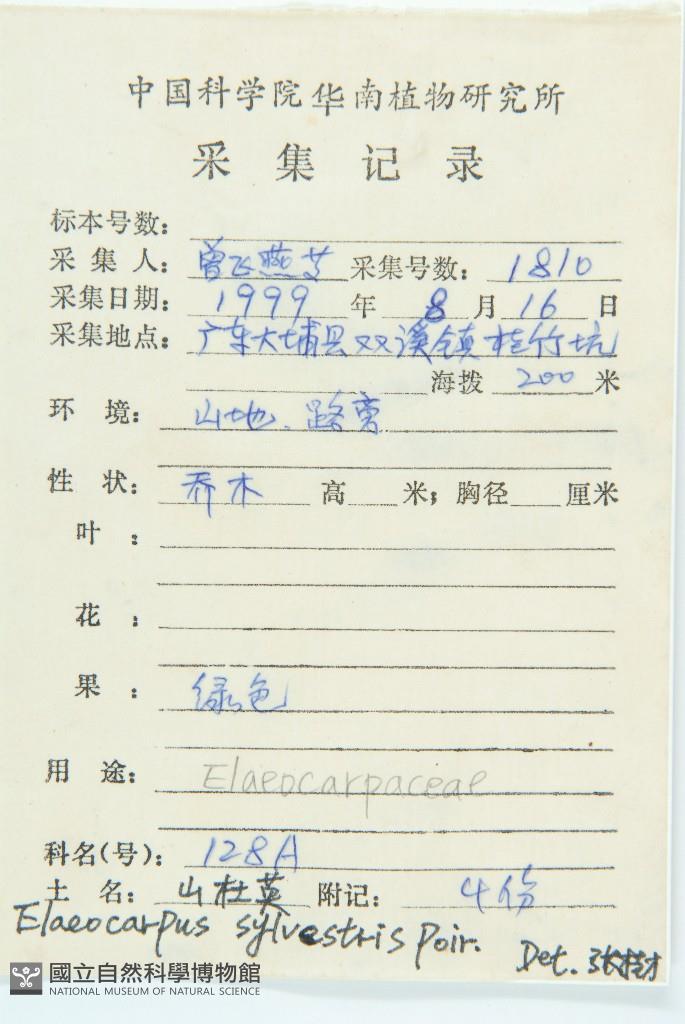 中国科学院华南植物研究所
采集记录
标本号数:
采集人: 曾飞燕等 采集号数: 1810
采集日期: 1999 年 8 月 16 日
采集地点: 广东大埔县双溪镇桂竹坑
海拨 200 米
环境: 山地、路旁
性状: 乔木 高 米; 胸径 厘米
叶:
花:
果: 绿色
用途: Elaeocarpaceae
科名(号): 128A
土名: 山杜英 附记: 4份
Elaeocarpus sylvestris Poir.
Det. 张桂才
國立自然科學博物館
NATIONAL MUSEUM OF NATURAL SCIENCE